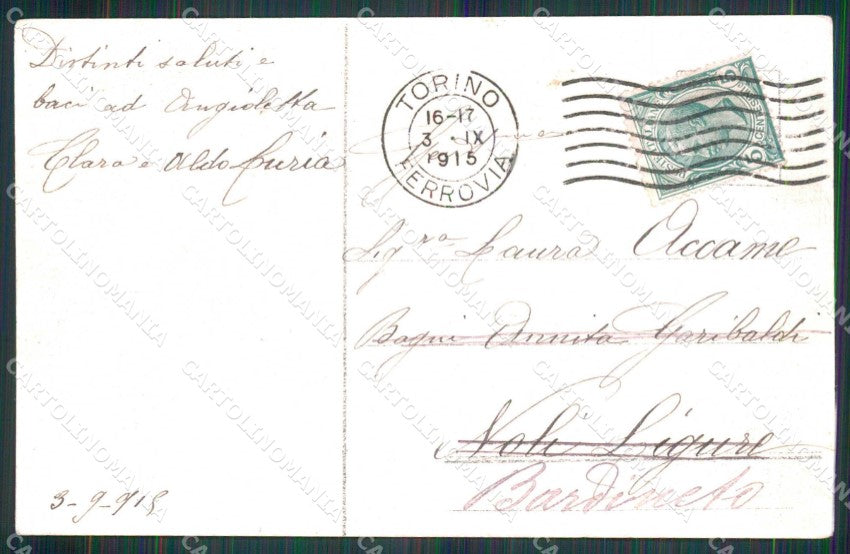 Distinti saluti e
baci ad Angioletta
Clara e Aldo Curia
3-9-915
TORINO
16-17
3 · IX
1915
FERROVIA
Sig.ra Laura Accame
Bagni Annita Garibaldi
Noli Ligure
Bardineto
CARTOLINOMANIA